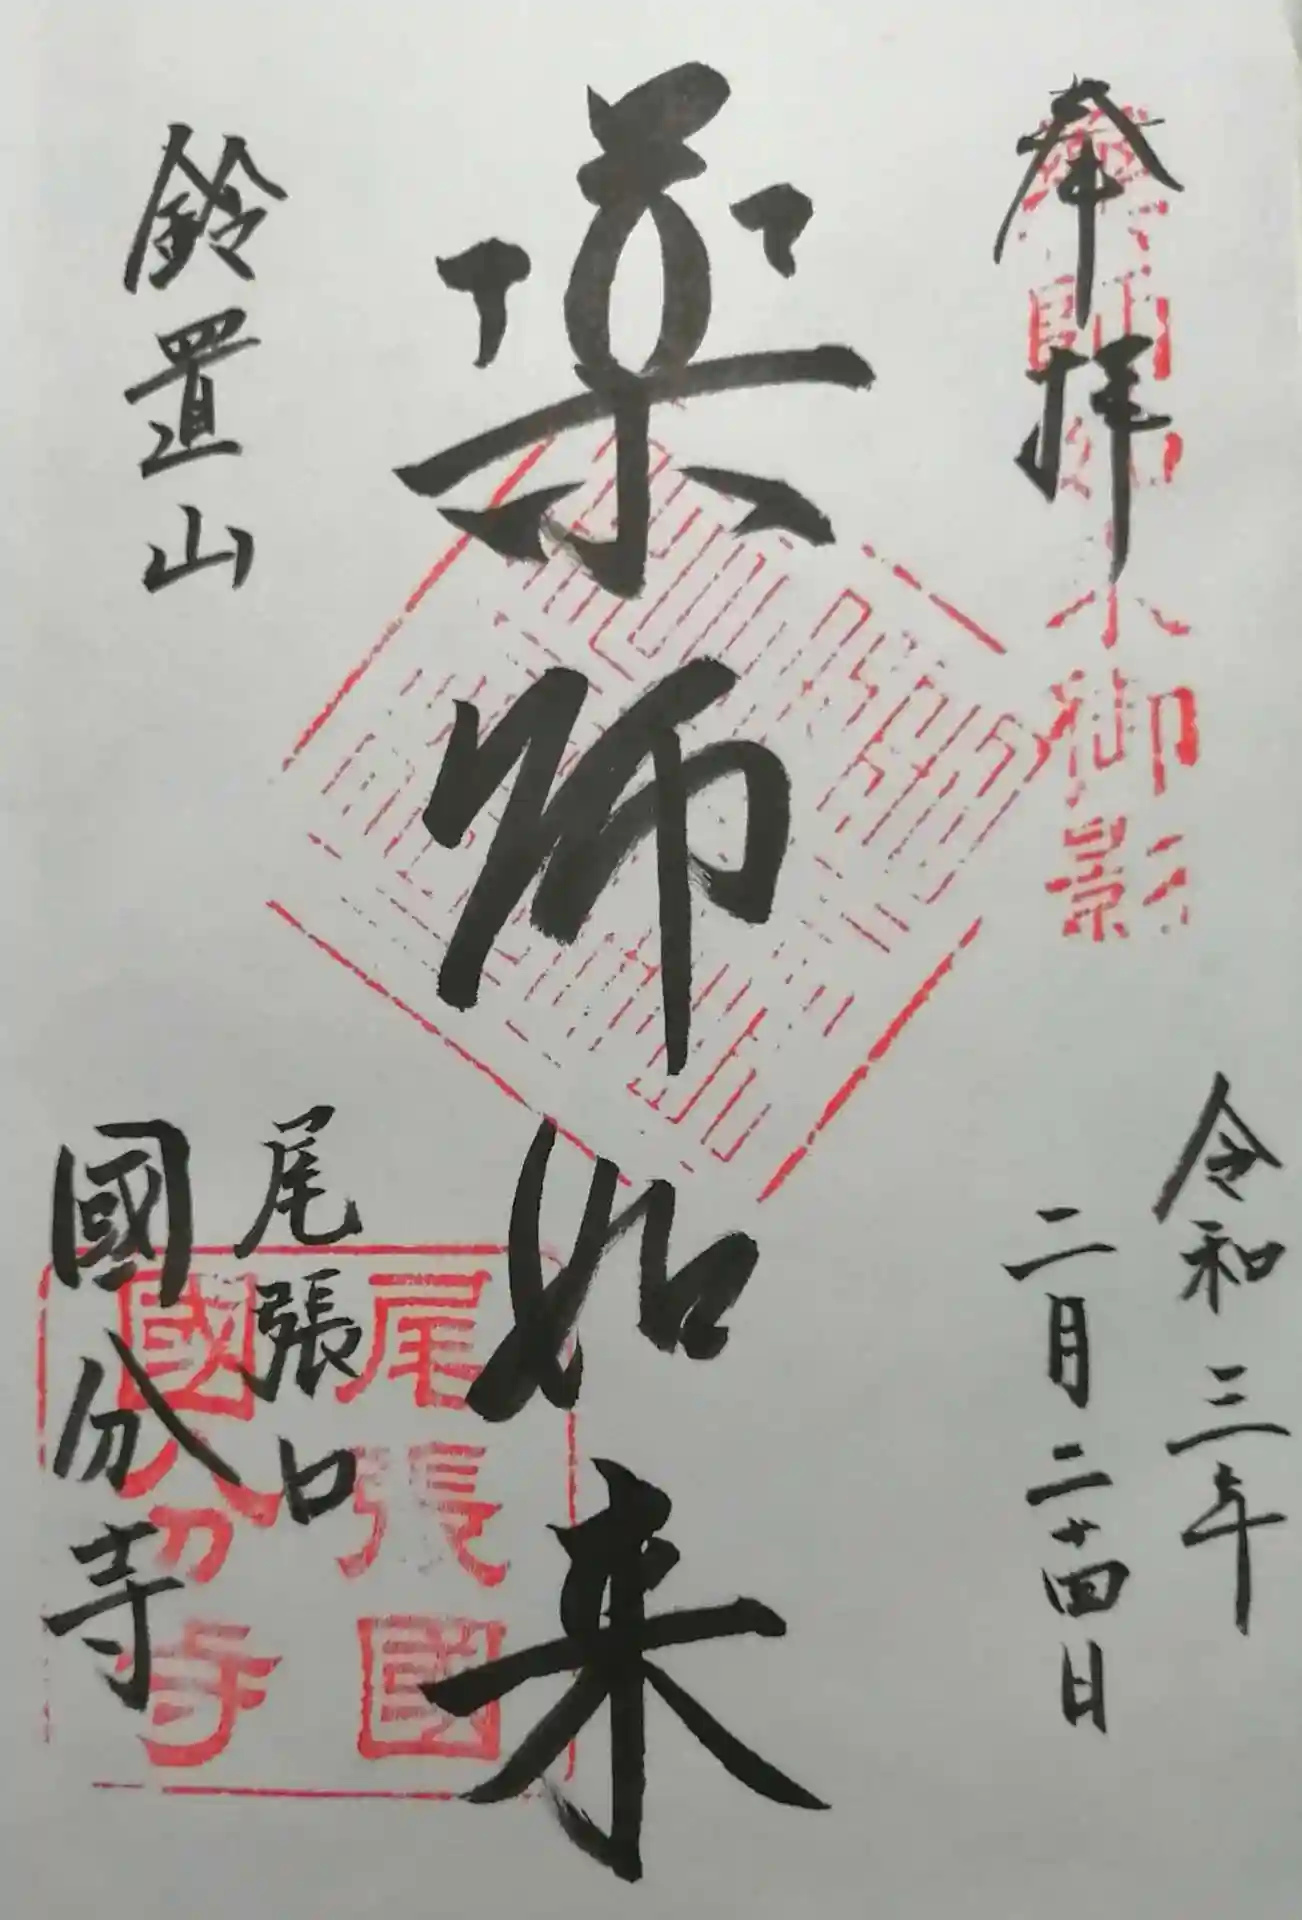 奉拝
薬師如来御影
令和三年
二月二十四日
薬師如来
鈴置山
尾張口
國分寺
尾張國
國分寺